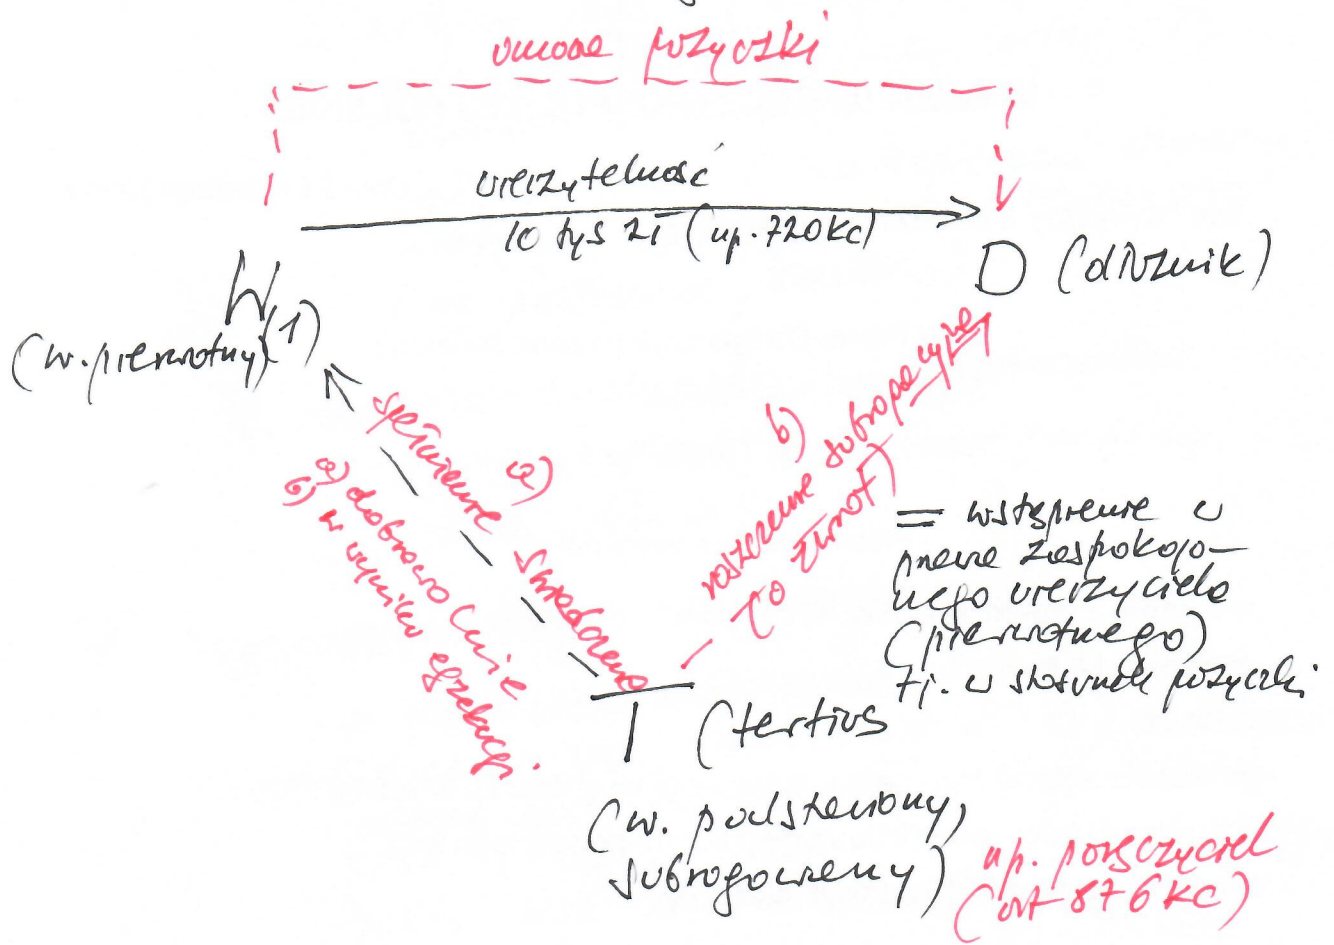 umowa pożyczki
wierzytelność
10 tys zł (np. 720 kc)
W
(w. pierwotny) (1)
D (dłużnik)
a) spełnienie świadczenia
a) dobrowolnie
b) w wyniku egzekucji.
b) roszczenie subrogacyjne
(o zwrot)
= wstąpienie w
prawa zaspokojo-
nego wierzyciela
(pierwotnego)
tj. w stosunek pożyczki
T (tertius
(w. podstawiony,
subrogowany)
np. poręczyciel
(art 876 KC)